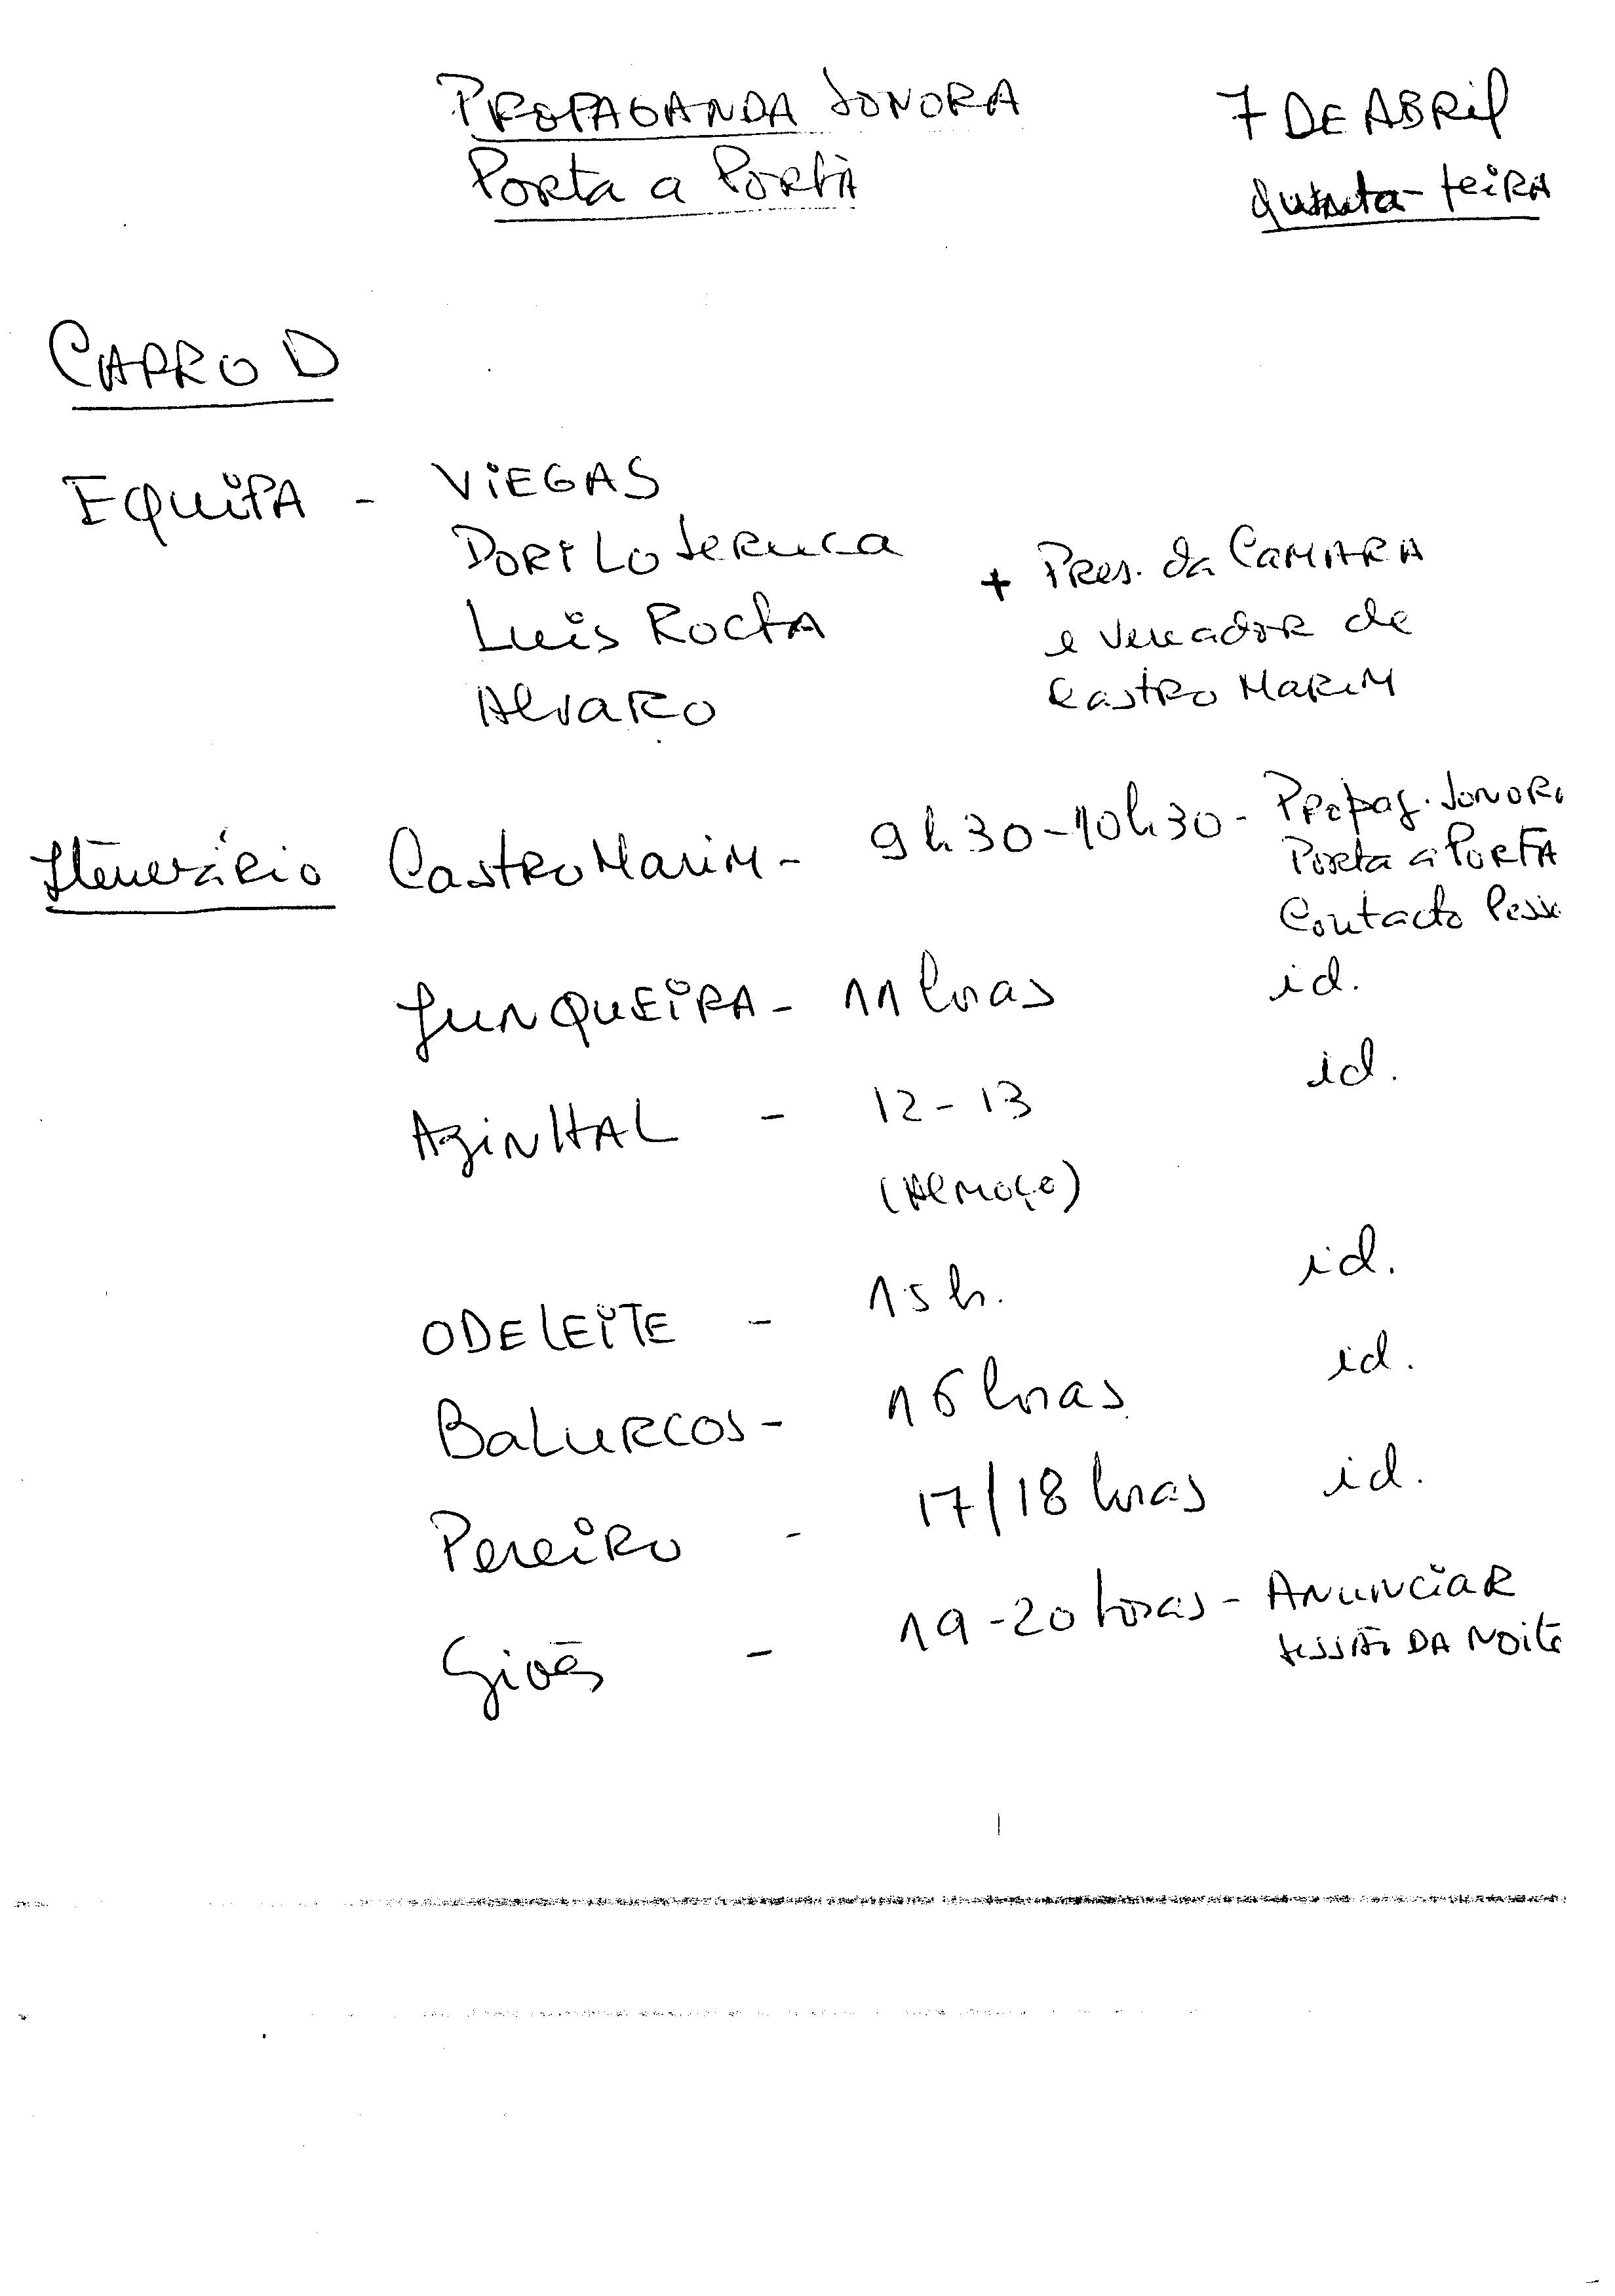 PROPAGANDA SONORA
Porta a Porta
7 DE ABRIL
quinta-feira
CARRO D
EQUIPA - VIEGAS
DORILO SERUCA
Luis ROCHA
Alvaro
+ Pres. da CAMARA
e Vereador de
Castro MARIM
Itenerário CastroMarim - 9h30-10h30 - Propag. Sonora
Porta a PORTA
Contacto
JUNQUEIRA - 11 horas id.
AzinHAL - 12-13 id.
(Almoço)
ODELEITE - 15h. id.
BALURCOS - 16 horas id.
Pereiro - 17/18 horas id.
Giões - 19-20 horas - ANUNCIAR
SESSÃO DA NOITE